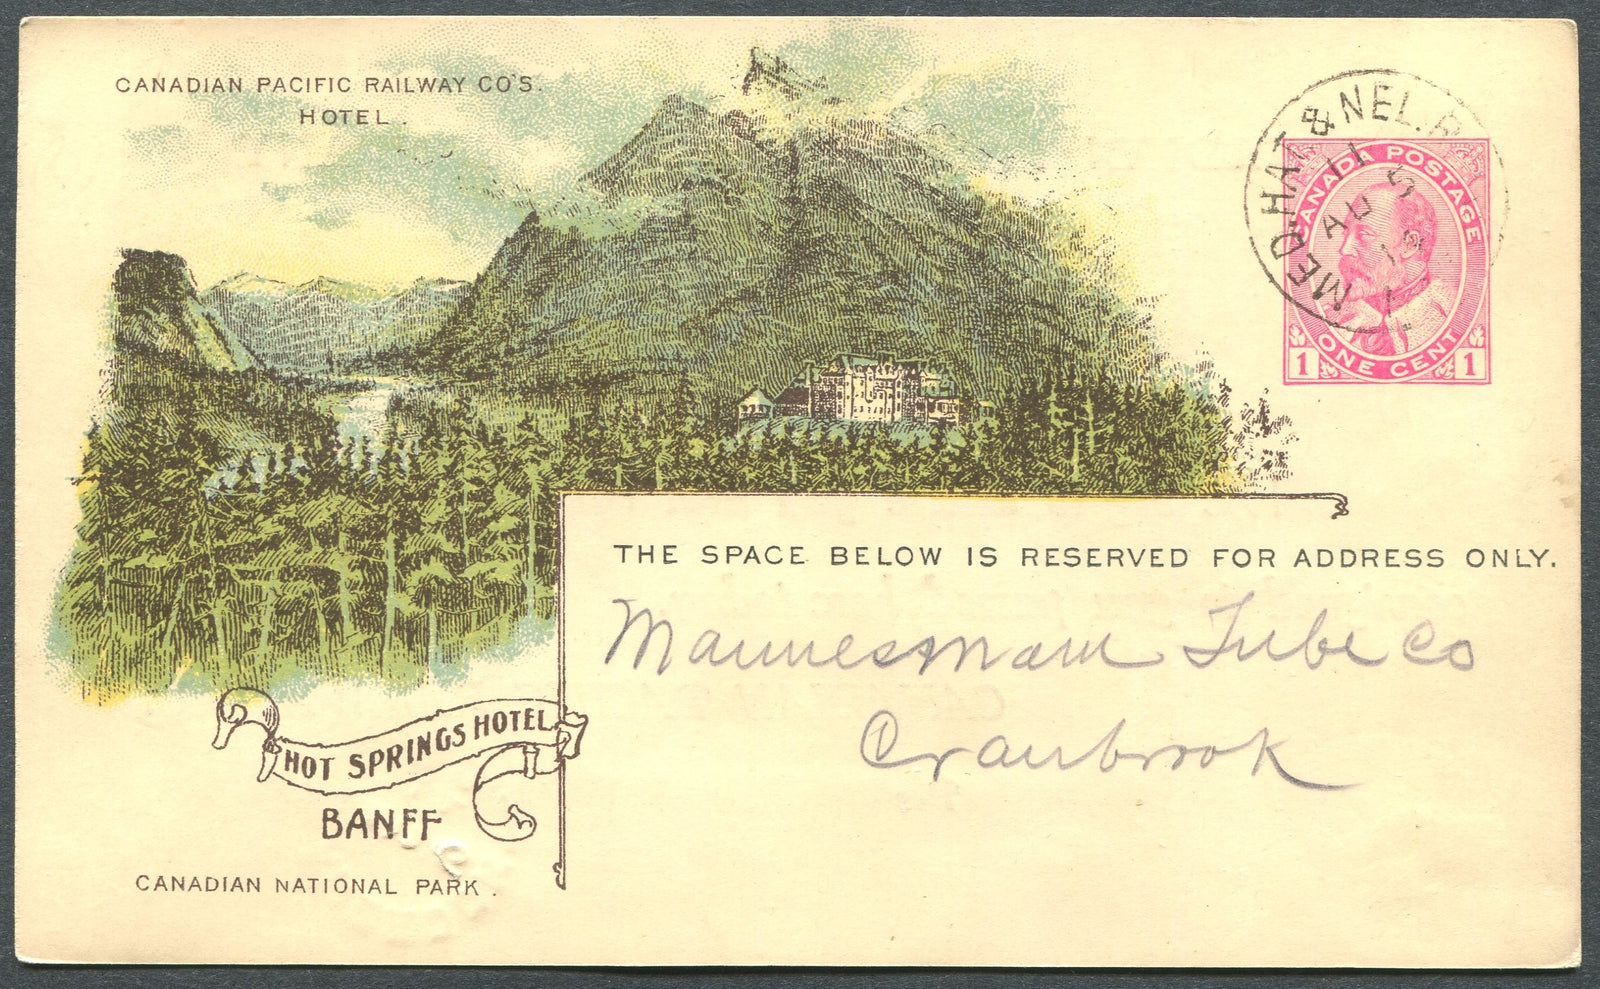 CANADIAN PACIFIC RAILWAY CO'S.
HOTEL.
MED.HAT & NEL.R
11
AU 5
CANADA POSTAGE
ONE CENT
1 1
THE SPACE BELOW IS RESERVED FOR ADDRESS ONLY.
Mannesmann Tube Co
Cranbrook
HOT SPRINGS HOTEL
BANFF
CANADIAN NATIONAL PARK.